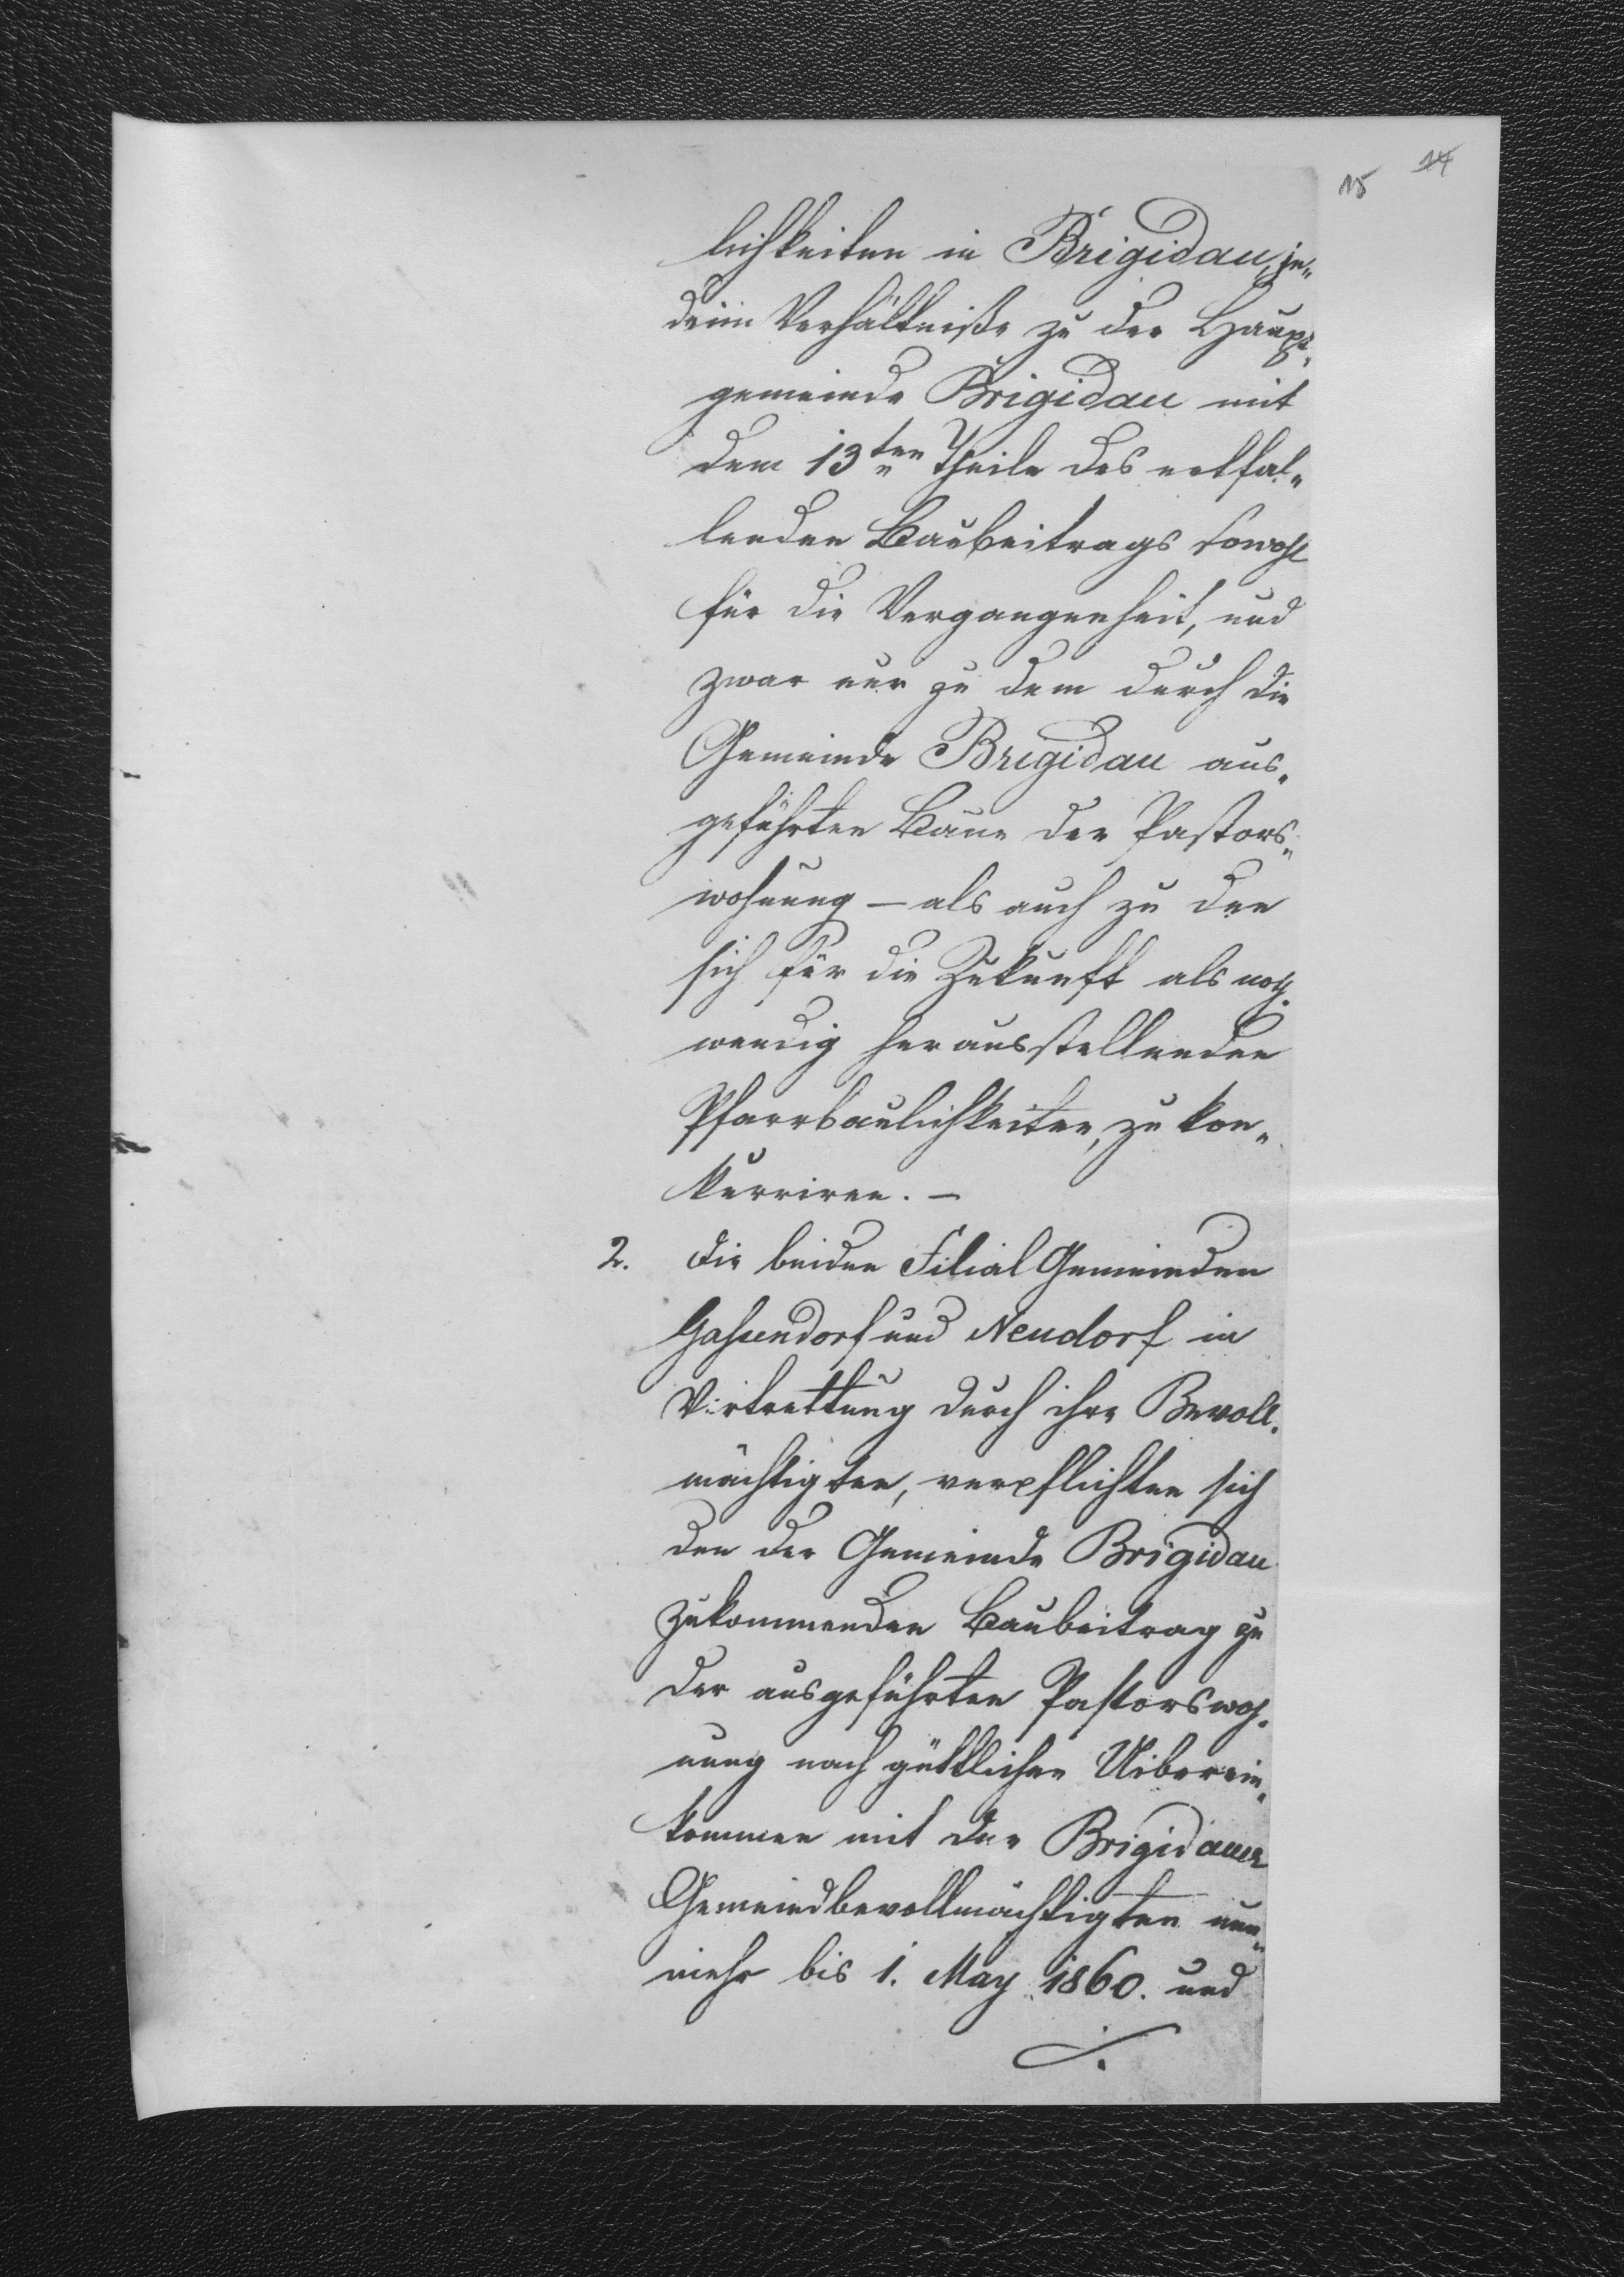 15 14
lichkeiten in Brigidau, je„
deim Verhältniße zu der Haupt„
gemeinde Brigidau mit
dem 13ten Theile des entfal„
lenden Baubeitrags sowohl
für die Vergangenheit, und
zwar nur zu dem durch die
Gemeinde Brigidau aus„
geführten Baue der Pastors„
wohnung — als auch zu den
sich für die Zukunft als noth„
wendig herausstellenden
Pfarrbaulichkeiten, zu kon„
kurriren. —
2. Die beiden Filial Gemeinden
Gassendorf und Neudorf in
Vertrettung durch ihre Bevoll„
mächtigten, verpflichten sich
den der Gemeinde Brigidau
zukommenden Baubeitrag zu
der ausgeführten Pastorswoh„
nung nach güttlichen Uiberein„
kommen mit den Brigidauer
Gemeindbevollmächtigten nun„
mehr bis 1. May 1860. und
./.